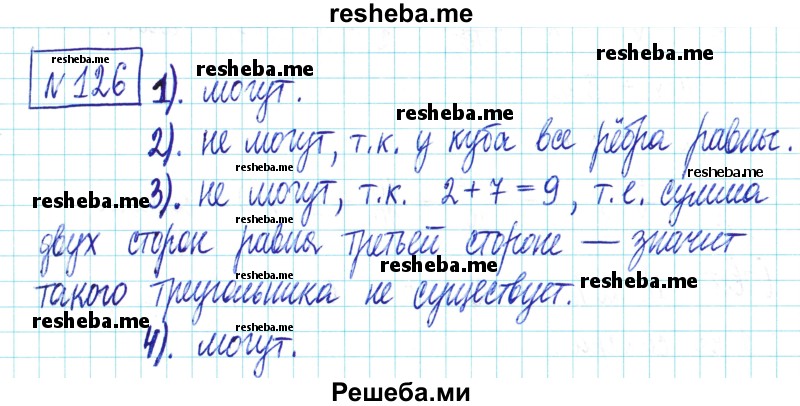 resheba.me
№ 126 1). могут.
2). не могут, т.к. у куба все рёбра равны.
3). не могут, т.к. 2+7=9, т.е. сумма
двух сторон равна третьей стороне — значит
такого треугольника не существует.
4). могут.
resheba.me
resheba.me
resheba.me
resheba.me
resheba.me
resheba.me
resheba.me
resheba.me
resheba.me
resheba.me
resheba.me
resheba.me
resheba.me
Решеба.ми